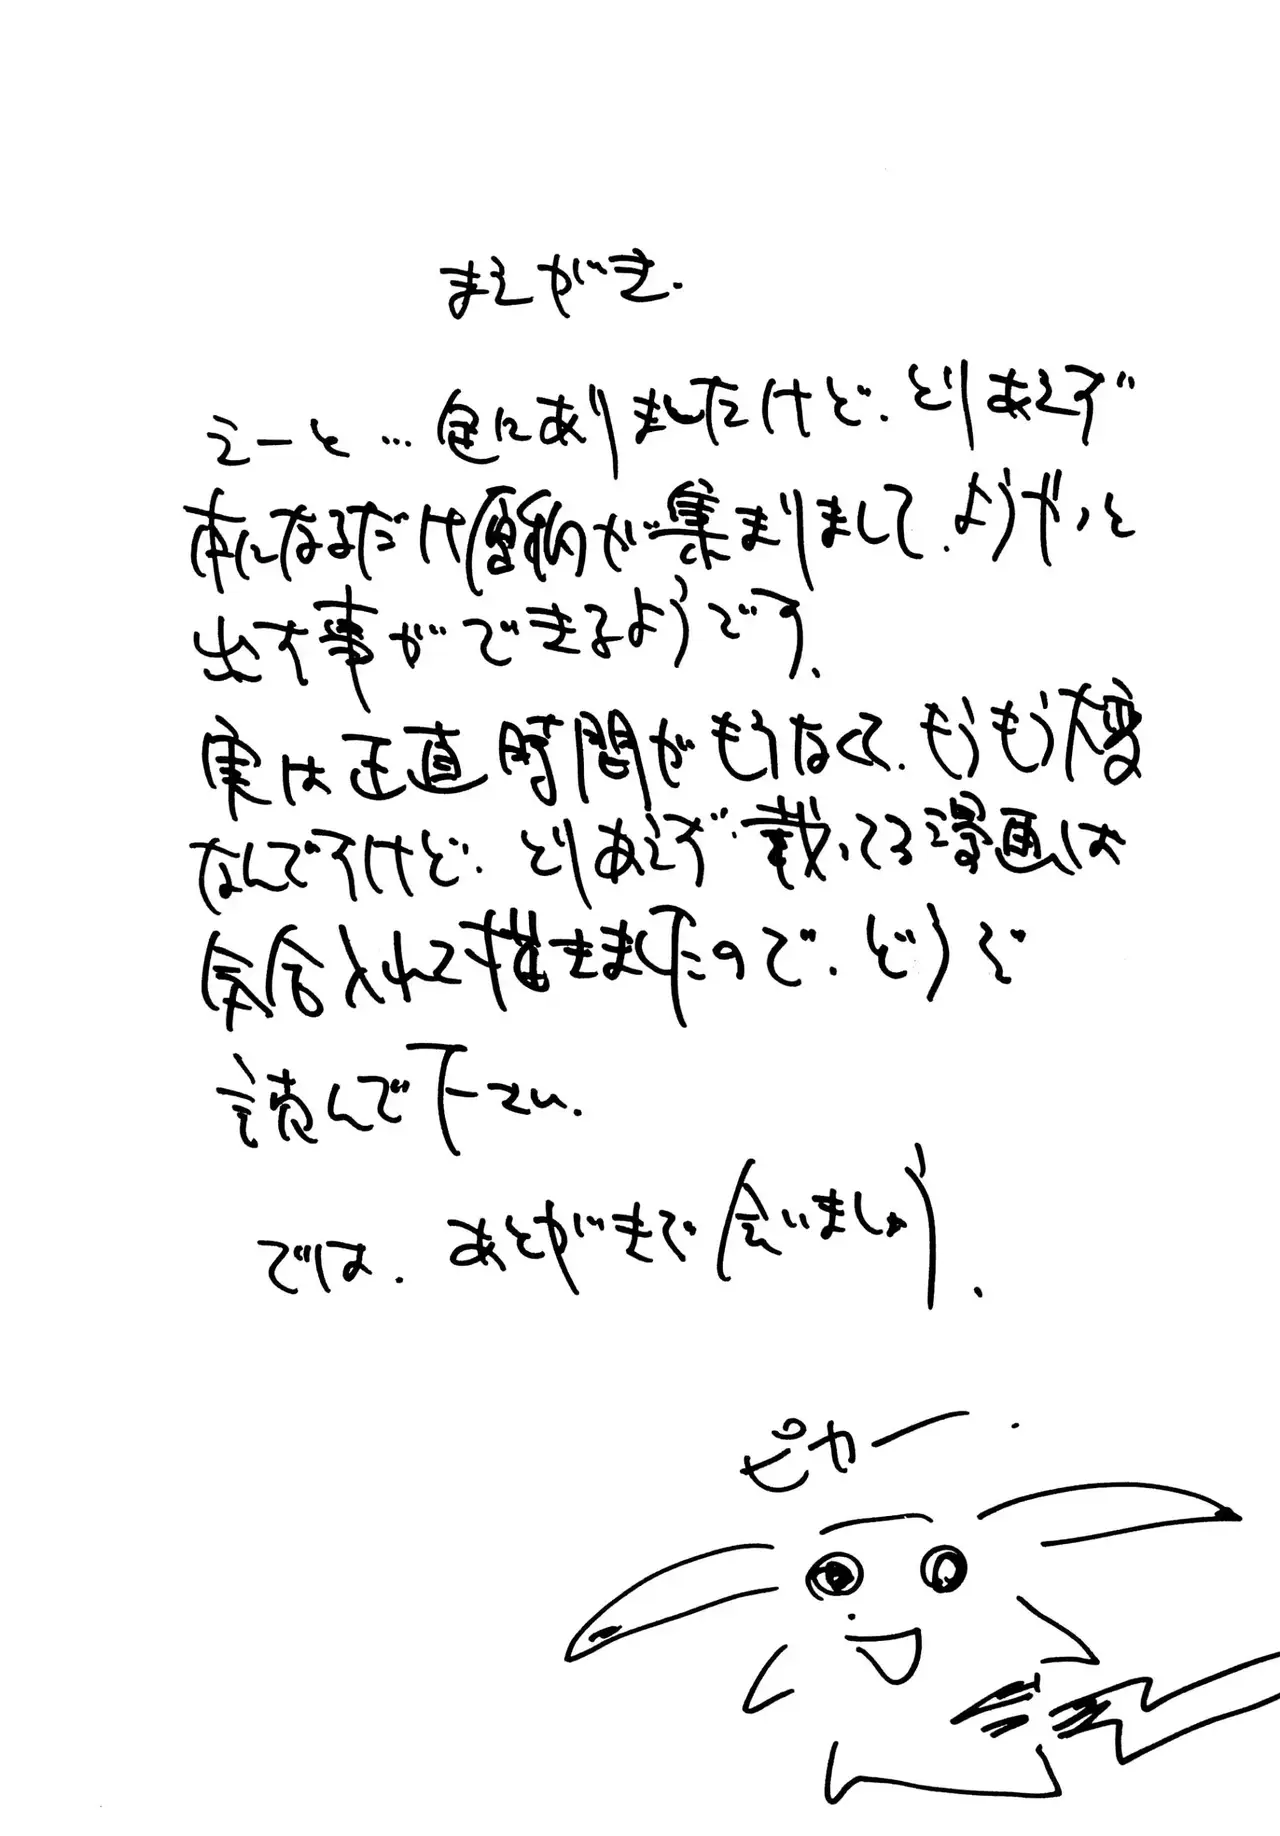 まえがき.
えーと… 色々ありましたけど、とりあえず
本になるだけ原稿が集まりまして、ようやっと
出す事ができるようです.
実は正直時間がもうなくて、もうもう大変
なんですけど、とりあえず載ってる漫画は
気合入れて描きましたので、どうぞ
読んで下さい.
では、あとがきで会いましょう.
ピカー.